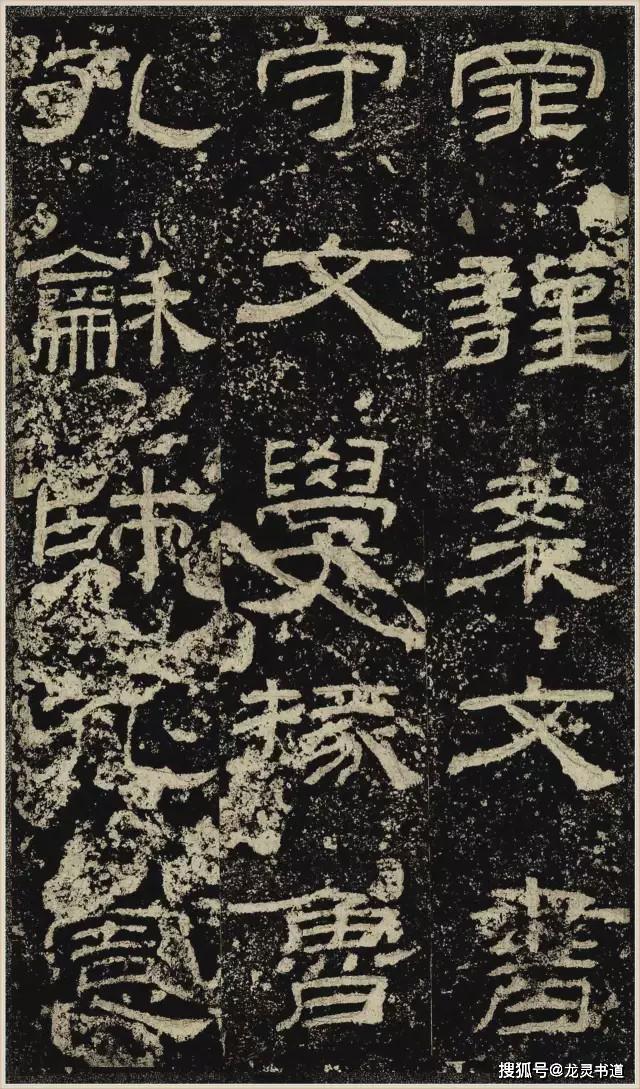 罪謹案文書
守文學掾魯
孔龢師孔憲
搜狐号@龙灵书道